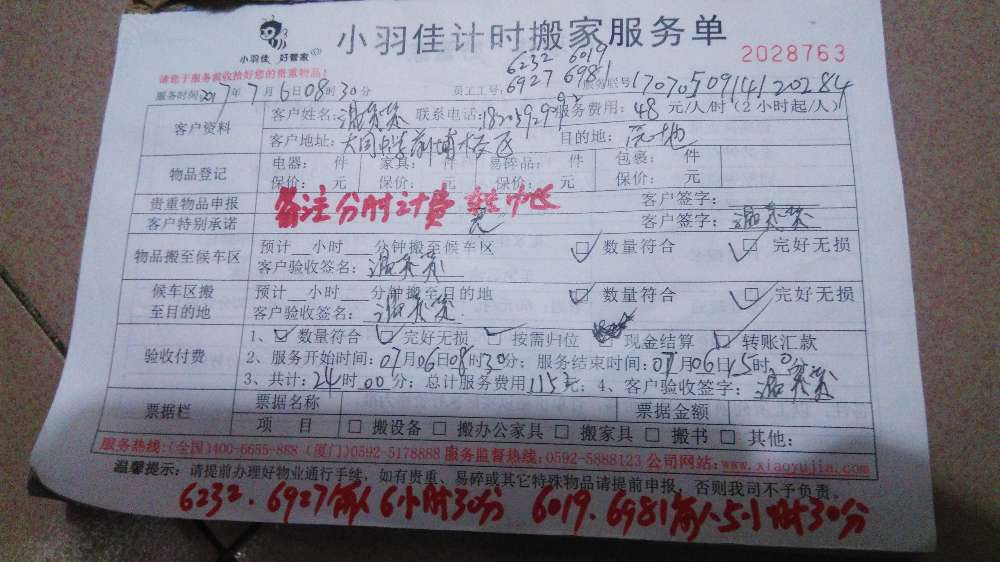 小羽佳 好管家
小羽佳计时搬家服务单
6232 6019
6927 6981
2028763
请您于服务前收拾好您的贵重物品!
服务时间:2017年7月6日08时30分 员工工号: 服务联号
客户资料
客户姓名: 联系电话: 服务费用:48元/人/时(2小时起/人)
客户地址: 目的地:
物品登记
电器: 件 家具: 件 易碎品: 件 包裹: 件
保价: 元 保价: 元 保价: 元 保价: 元
贵重物品申报 客户签字:
备注分时计费
客户特别承诺 无 客户签字:
物品搬至候车区
预计 小时 分钟搬至候车区 数量符合 完好无损
客户验收签名:
候车区搬至目的地
预计 小时 分钟搬至目的地 数量符合 完好无损
客户验收签名:
验收付费
1、数量符合 完好无损 按需归位 现金结算 转账汇款
2、服务开始时间:07月06日08时30分;服务结束时间:07月06日15时0分
3、共计:24时00分;总计服务费用1152元;4、客户验收签字:
票据栏
票据名称 票据金额
项 目 搬设备 搬办公家具 搬家具 搬书 其他:
服务热线:(全国)400-6655-888 (厦门)0592-5178888 服务监督热线:0592-5888123 公司网站:www.xiaoyujia.com
温馨提示:请提前办理好物业通行手续,如有贵重、易碎或其它特殊物品请提前申报,否则我司不予负责。
6232.6927两人6小时30分 6019.6981两人5小时30分